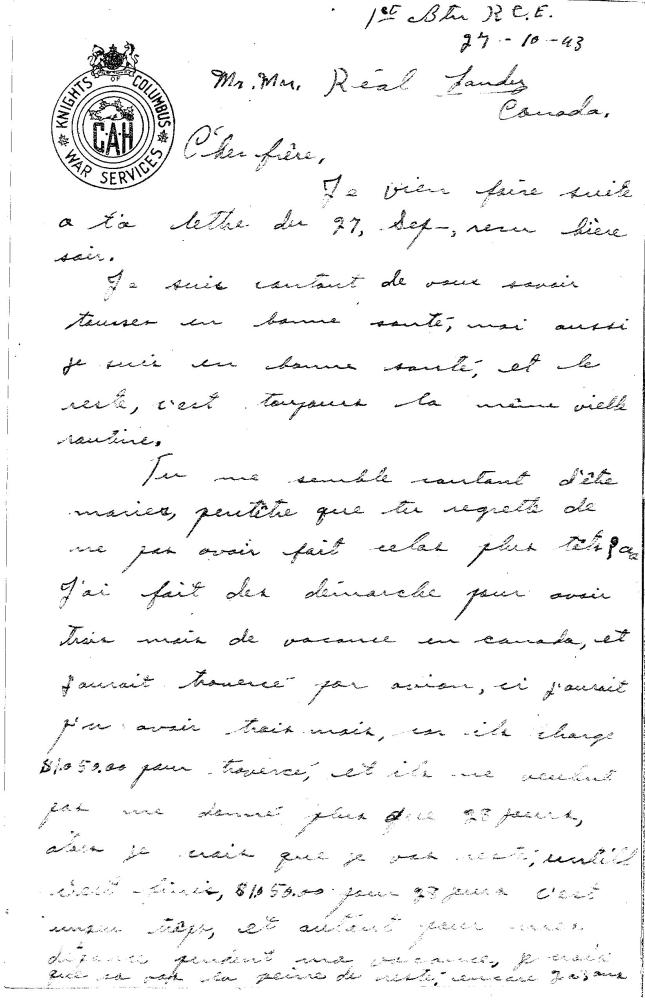 1st Btn R.C.E.
27-10-43
KNIGHTS OF COLUMBUS
C·A·H
WAR SERVICES
Mr. Mrs. Réal Landry
Canada.
Cher frère,
Je vien faire suite
a ta lettre du 27, Sep-, recu hière
soir.
Je suis contant de vous savoir
tousser en bonne santé, moi aussi
je suis en bonne santé, et le
reste, c'est toujours la même vielle
routine.
Tu me semble contant d'ête
mariez, peutêtre que tu regrette de
ne pas avoir fait celas plus tôt
J'ai fait des démarche pour avoir
trois mois de vacance en canada, et
j'aurait traversé par avion, ci j'aurait
p'u avoir trois mois, car ils charge
$1,050.00 pour traversé, et ils ne veulent
pas me donné plus que 28 jours,
alors je crois que je vas resté, untill
c'est finis, $1,050.00 pour 28 jours c'est
trop, et autant pour mes
dépance pendent ma vacance, je crois
que sa vas la peinne de resté, encore 2 ans